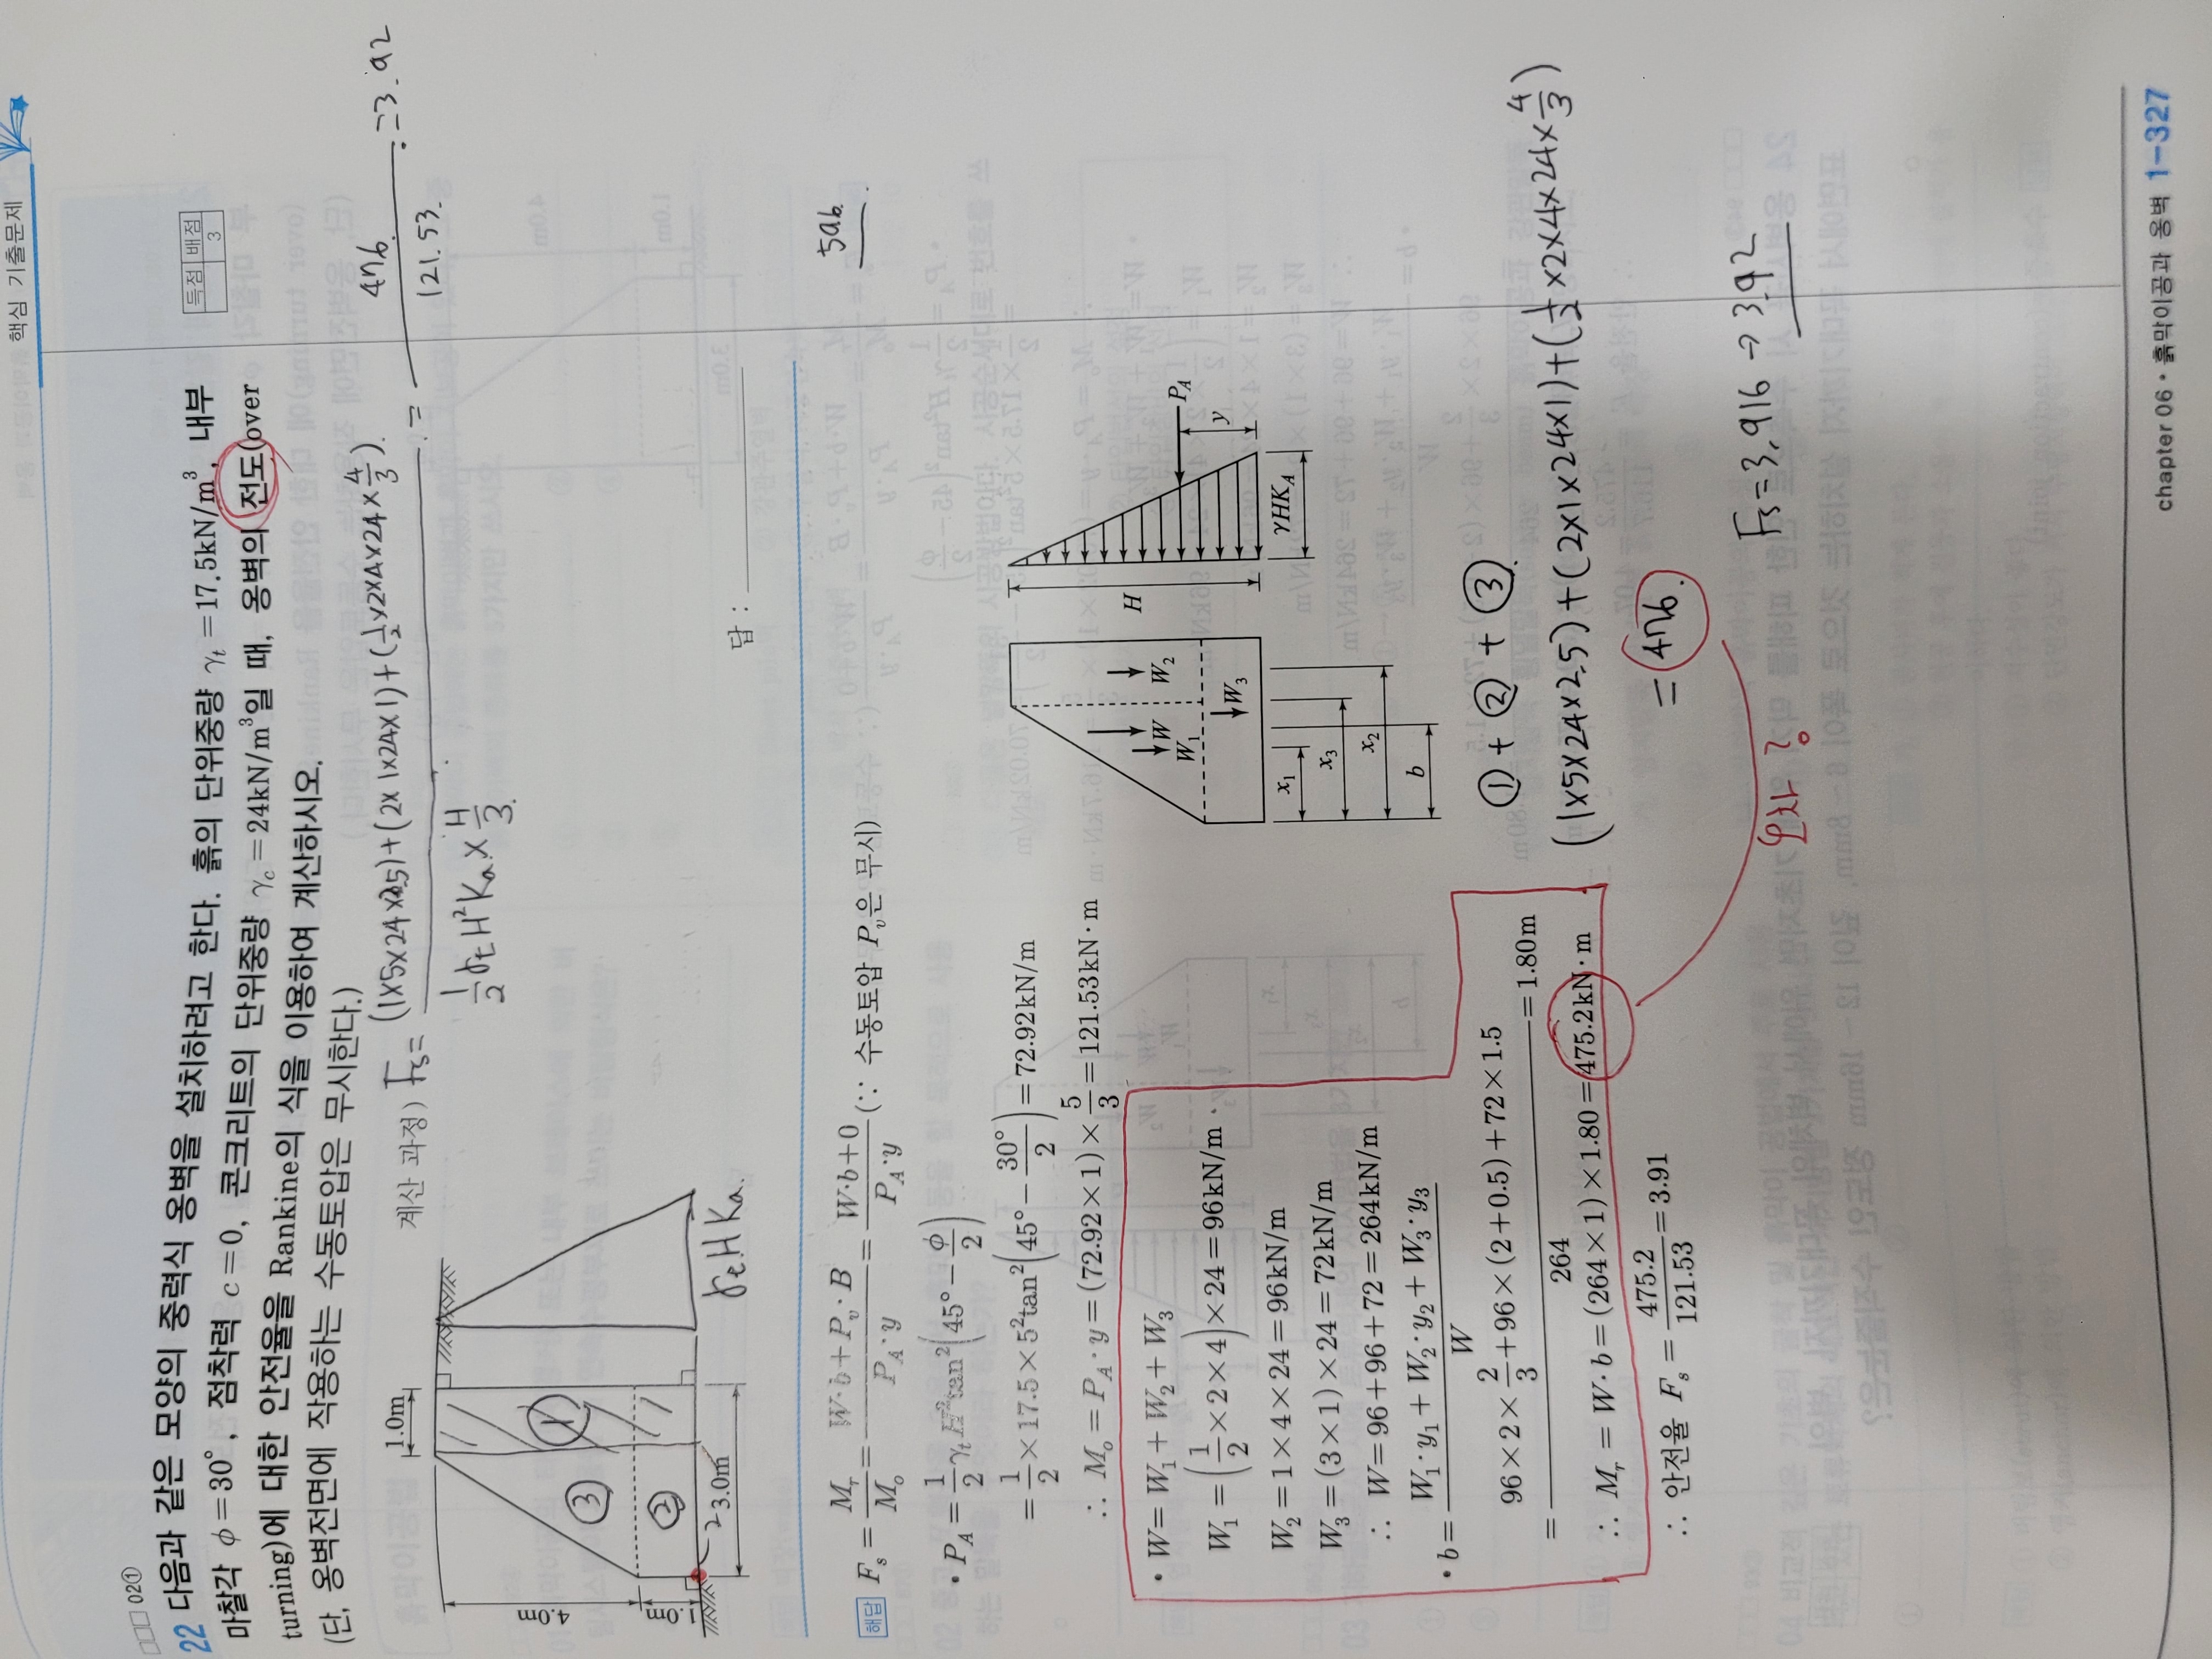 핵심 기출문제
□□□ 02①
득점 배점
3
22 다음과 같은 모양의 중력식 옹벽을 설치하려고 한다. 흙의 단위중량 γt=17.5kN/m³, 내부
마찰각 φ=30°, 점착력 c=0, 콘크리트의 단위중량 γc=24kN/m³일 때, 옹벽의 전도(over
turning)에 대한 안전율을 Rankine의 식을 이용하여 계산하시오.
(단, 옹벽전면에 작용하는 수동토압은 무시한다.)
1.0m
4.0m
1.0m
3.0m
① ② ③
2
γt H Ka.
계산 과정) Fs = (1×5×24×2.5)+(2×1×24×1)+(1/2×2×4×24×4/3).
1/2 γt H² Ka × H/3.
476.
121.53.
∴=3.92
답 :
596.
해답 Fs = Mr/Mo = (W·b+Pv·B)/(PA·y) = (W·b+0)/(PA·y) (∵ 수동토압 Pv은 무시)
• PA = 1/2 γt H² tan²(45° − φ/2)
= 1/2 × 17.5 × 5² tan²(45° − 30°/2) = 72.92kN/m
∴ Mo = PA·y = (72.92×1)× 5/3 = 121.53kN·m
• W = W1 + W2 + W3
W1 = (1/2 ×2×4)×24 = 96kN/m
W2 = 1×4×24 = 96kN/m
W3 = (3×1)×24 = 72kN/m
∴ W = 96+96+72 = 264kN/m
• b = (W1·y1 + W2·y2 + W3·y3)/W
= (96×2× 2/3 +96×(2+0.5)+72×1.5)/264 = 1.80m
∴ Mr = W·b = (264×1)×1.80 = 475.2kN·m
∴ 안전율 Fs = 475.2/121.53 = 3.91
W
W1
W2
W3
x1
x3
x2
b
H
PA
y
γHKA
① + ② + ③
(1×5×24×2.5)+(2×1×24×1)+(1/2×2×4×24×4/3)
= 476.
오차?
Fs=3.916 → 3.92
chapter 06 • 흙막이공과 옹벽 1-327